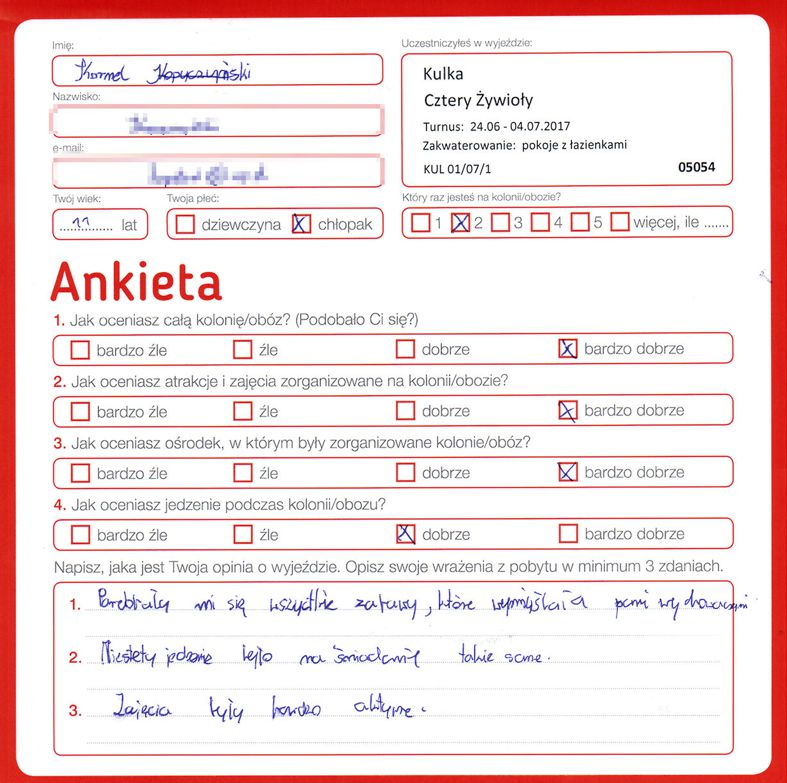 Imię:
Kornel
Uczestniczyłeś w wyjeździe:
Kulka
Cztery Żywioły
Turnus: 24.06 - 04.07.2017
Zakwaterowanie: pokoje z łazienkami
KUL 01/07/1 05054
Nazwisko:
e-mail:
Twój wiek:
11 lat
Twoja płeć:
dziewczyna chłopak
Który raz jesteś na kolonii/obozie?
1 2 3 4 5 więcej, ile .......
Ankieta
1. Jak oceniasz całą kolonię/obóz? (Podobało Ci się?)
bardzo źle źle dobrze bardzo dobrze
2. Jak oceniasz atrakcje i zajęcia zorganizowane na kolonii/obozie?
bardzo źle źle dobrze bardzo dobrze
3. Jak oceniasz ośrodek, w którym były zorganizowane kolonie/obóz?
bardzo źle źle dobrze bardzo dobrze
4. Jak oceniasz jedzenie podczas kolonii/obozu?
bardzo źle źle dobrze bardzo dobrze
Napisz, jaka jest Twoja opinia o wyjeździe. Opisz swoje wrażenia z pobytu w minimum 3 zdaniach.
1. mi się wszystkie zabawy, które wymyślała pani wychowawczyni
2. Niestety jedzenie było na śniadanie takie same.
3. Zajęcia były bardzo aktywne.